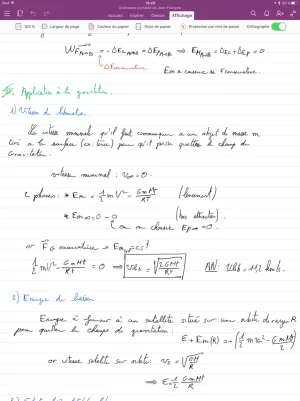 19:09
Définitions portable de Jean-François
Accueil Insérer Dessin Affichage
100 % Largeur de page Couleur du papier Style de papier Protection par mot de passe Orthographe
W F A→B = -ΔEc A→B = ΔEp A→B ⇒ Em A→B = ΔEc + ΔEp = 0
Em = conserve si F conservative.
Application à la gravitation.
1) Vitesse de libération
La vitesse minimale qu'il faut communiquer à un objet de masse m
à la surface (ex: terre) pour qu'il puisse quitter le champ de
Gravitation.
vitesse minimal : v∞ = 0.
2 phases: * Em = 1/2 m V² - GmMt/Rt (lancement)
* Em∞ = 0 - 0 (hors attraction).
on choisit Ep∞ = 0.
or FG conservative ⇒ Em = cst
1/2 mV² - GmMt/Rt = 0 ⇒ Vlib = √2GMt/Rt AN: Vlib = 11,2 km/s.
2) Energie de liaison
Energie à fournir à un satellite situé sur une orbite de rayon R
pour quitter le champs de gravitation:
E + Em(R) = -(1/2 mv² - GmMt/R)
or vitesse satellite sur orbite: vs = √GM/R
⇒ E = 1/2 GmMt/R